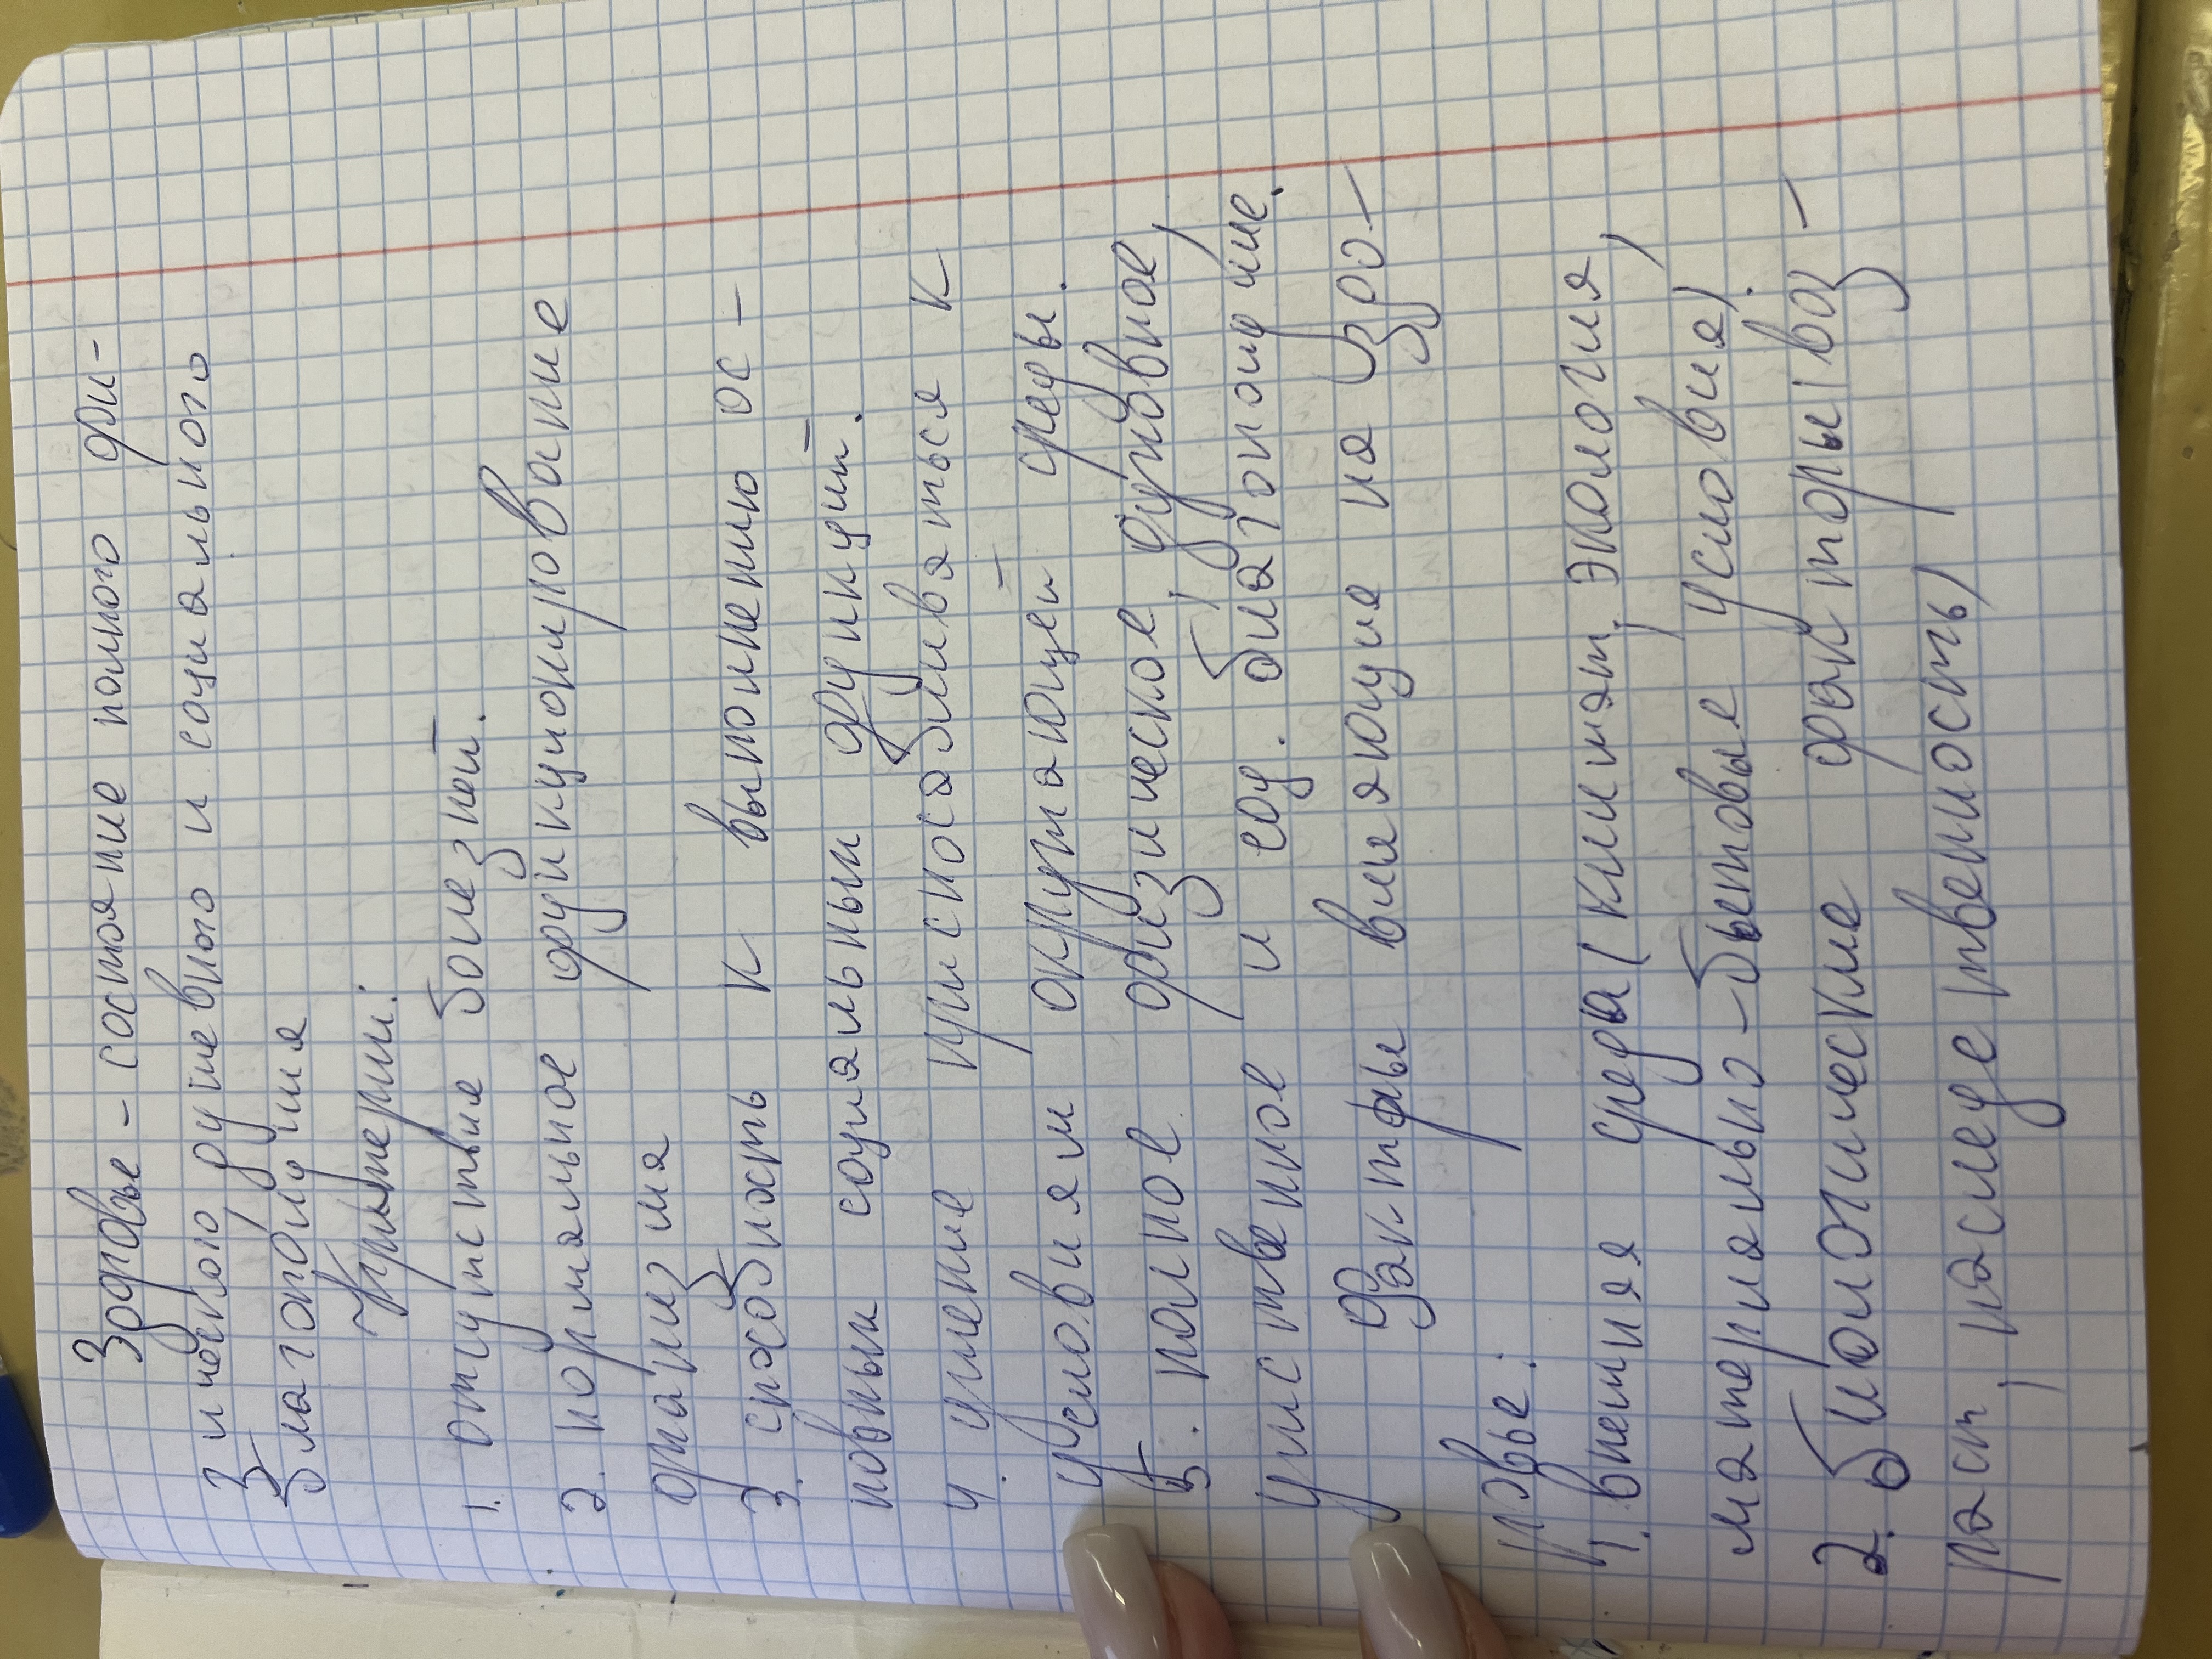 Здровье - состояние полного фи-
зического душевного и социального
благополучия
Критерии:
1. отсутствие болезней.
2. нормальное функционирование
организма
3. способность к выполнению ос-
новным социальным функций.
4. умение приспосабливаться к
условиям окружающей среды.
5. полное физическое, духовное,
умственное и соц. благополучие.
Факторы влияющие на здро-
ровье:
1. внешняя среда (климат, экология,
материально-бытовые условия).
2. биологические факторы (воз-
раст, наследственность)